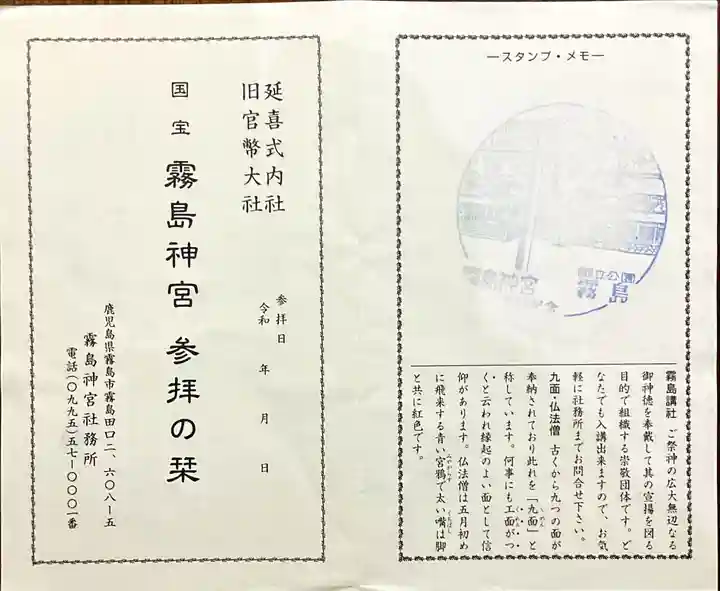 ―スタンプ・メモ―
霧島神宮
国立公園
霧島
霧島講社　ご祭神の広大無辺なる
御神徳を奉戴して其の宣揚を図る
目的で組織する崇敬団体です。ど
なたでも入講出来ますので、お気
軽に社務所までお問合せ下さい。
九面・仏法僧　古くから九つの面が
奉納されており此れを「九面」と
称しています。何事にも工面がつ
くと云われ縁起のよい面として信
仰があります。仏法僧は五月初め
に飛来する青い宮鴉で太い嘴は脚
と共に紅色です。
延喜式内社
旧官幣大社
国宝　霧島神宮　参拝の栞
参拝日
令和　年　月　日
鹿児島県霧島市霧島田口二、六〇八ー五
霧島神宮社務所
電話(〇九九五)五七ー〇〇〇一番